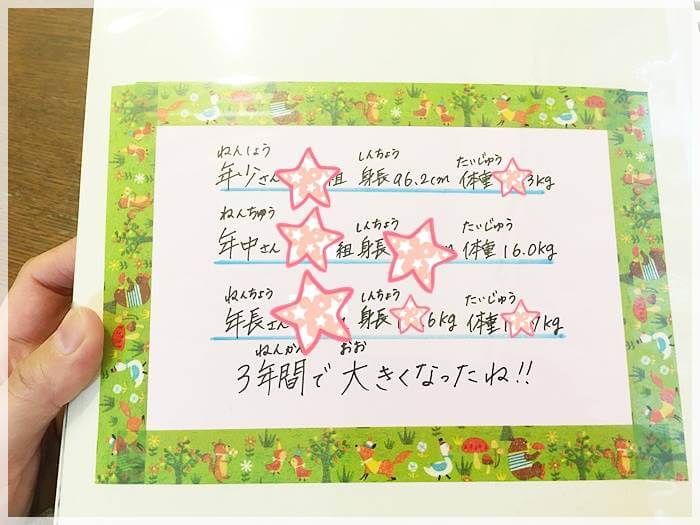 ねんしょう しんちょう たいじゅう
年少さん 組 身長 96.2cm 体重 3kg
ねんちゅう しんちょう たいじゅう
年中さん 組 身長 m 体重 16.0kg
ねんちょう しんちょう たいじゅう
年長さん 身長 6kg 体重 7kg
ねんかん おお
3年間で 大きくなったね!!